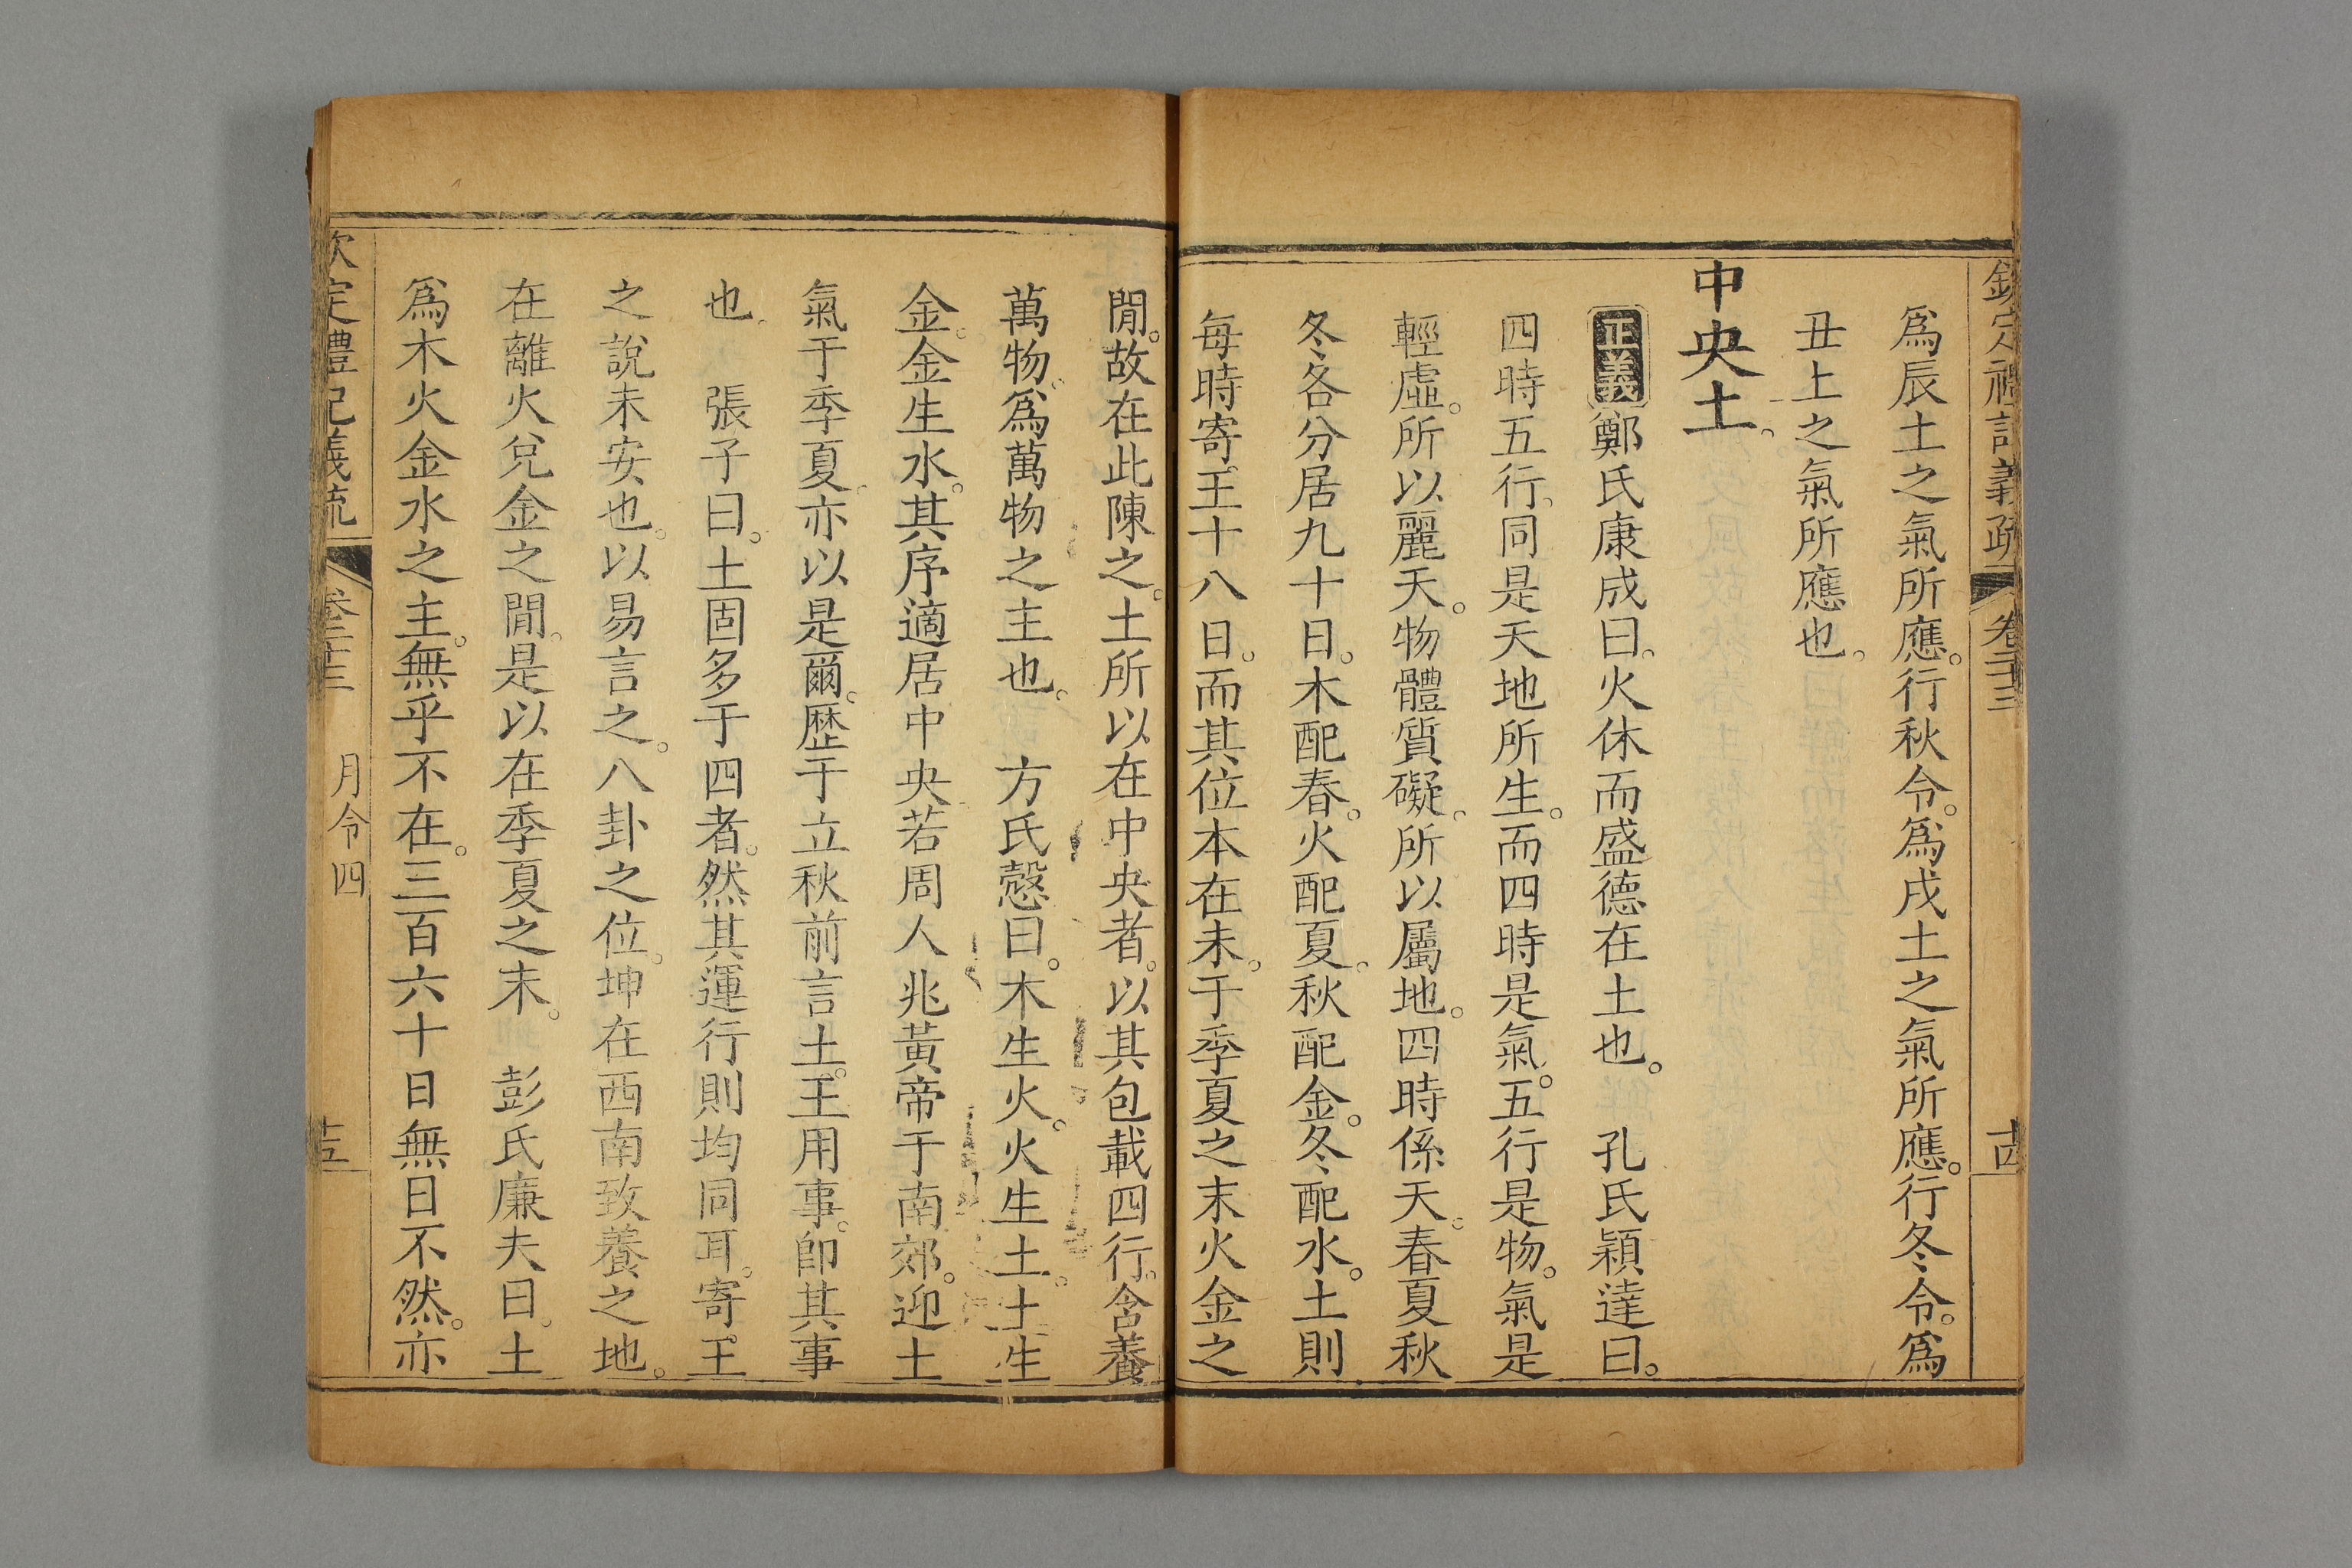 欽定禮記義疏 卷三十三 十四
爲辰土之氣所應。行秋令。爲戌土之氣所應。行冬令。爲
丑土之氣所應也。
中央土。
正義 鄭氏康成曰。火休而盛德在土也。 孔氏穎達曰。
四時五行。同是天地所生。而四時是氣。五行是物。氣是
輕虛。所以麗天。物體質礙。所以屬地。四時係天。春夏秋
冬各分居九十日。木配春。火配夏。秋配金。冬配水。土則
每時寄王十八日。而其位本在未。于季夏之末火金之
閒。故在此陳之。土所以在中央者。以其包載四行。含養
萬物。爲萬物之主也。 方氏慤曰。木生火。火生土。土生
金。金生水。其序適居中央。若周人兆黃帝于南郊。迎土
氣于季夏。亦以是爾。歷于立秋前言土。王用事。卽其事
也。 張子曰。土固多于四者。然其運行則均同耳。寄王
之說未安也。以易言之。八卦之位。坤在西南致養之地。
在離火兌金之閒。是以在季夏之末。 彭氏廉夫曰。土
爲木火金水之主。無乎不在。三百六十日無日不然。亦
欽定禮記義疏 卷三十三 月令四 十五